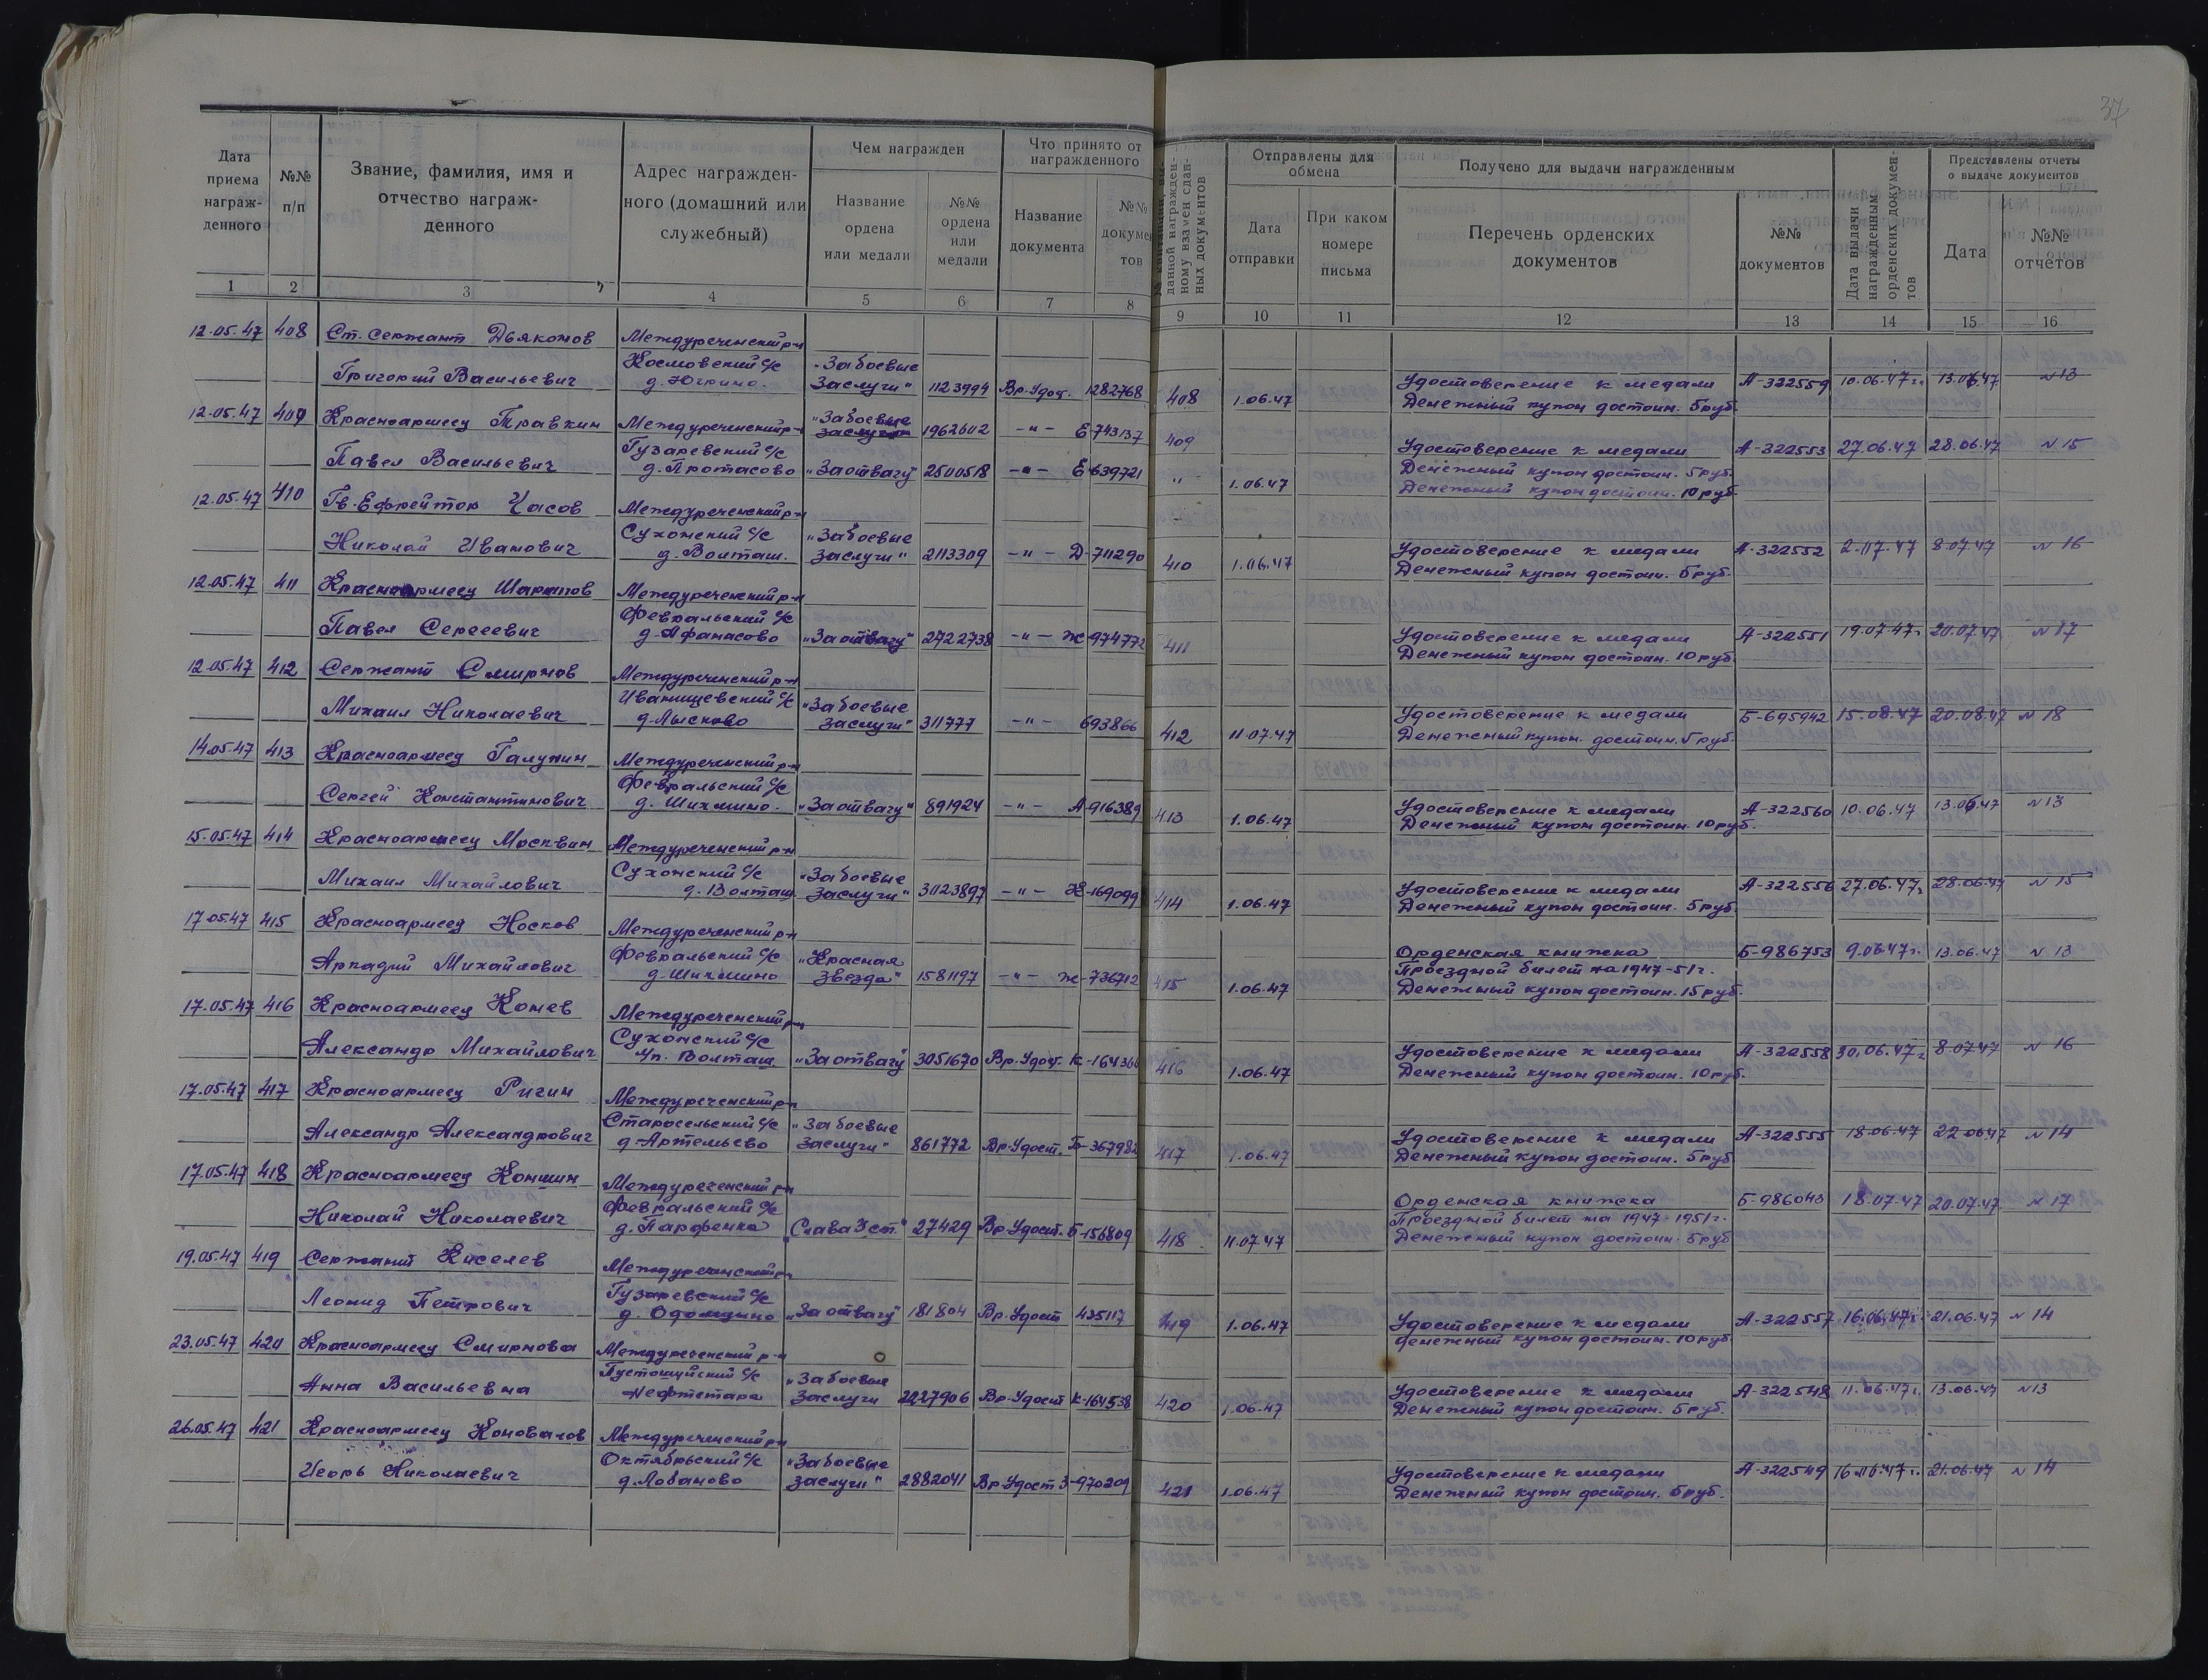 37
Дата приема награж-денного
№№ п/п
Звание, фамилия, имя и отчество награж-денного
Адрес награжден-ного (домашний или служебный)
Чем награжден
Название ордена или медали
№№ ордена или медали
Что принято от награжденного
Название документа
№№ докуме тов
данной награжден-ному взамен сдан-ных документов
Отправлены для обмена
Дата отправки
При каком номере письма
Получено для выдачи награжденным
Перечень орденских документов
№№ документов
Дата выдачи награжденным орденских докумен-тов
Представлены отчеты о выдаче документов
Дата
№№ отчетов
1 2 3 4 5 6 7 8 9 10 11 12 13 14 15 16
12.05.47 408 Ст. Сержант Дьяконов Междуреченский р-н
Григорий Васильевич Космовский с/с д. Югрино. "За боевые Заслуги" 1123994 Вр. Удот. 1282768 408 1.06.47 Удостоверение к медали А-322559 10.06.47 г. 13.06.47 N 13
Денежный купон достоин. 5 руб.
12.05.47 409 Красноармеец Травкин Междуреченский р-н "За боевые заслуги" 1962602 -"- Е-743137 409
Павел Васильевич Гузаревский с/с д. Протасово "За отвагу" 2500518 -"- Е-639721 " 1.06.47 Удостоверение к медали А-322553 27.06.47 28.06.47 N 15
Денежный купон достоин. 5 руб.
Денежный купон достоин. 10 руб.
12.05.47 410 Гв. Ефрейтор Часов Междуреченский р-н
Николай Иванович Сухонский с/с д. Волташ. "За боевые Заслуги" 2113309 -"- Д-711290 410 1.06.47 Удостоверение к медали А-322552 2.07.47 8.07.47 N 16
Денежный купон достоин. 5 руб.
12.05.47 411 Красноармеец Шарыпов Междуреченский р-н
Павел Сергеевич Февральский с/с д. Афанасово "За отвагу" 2722738 -"- Ж-974772 411 Удостоверение к медали А-322551 19.07.47 г. 20.07.47 N 17
Денежный купон достоин. 10 руб.
12.05.47 412 Сержант Смирнов Междуреченский р-н
Михаил Николаевич Иванищевский с/с д. Лысково "За боевые Заслуги" 311777 -"- 693866 412 11.07.47 Удостоверение к медали Б-695942 15.08.47 20.08.47 N 18
Денежный купон. достоин. 5 руб.
14.05.47 413 Красноармеец Галунин Междуреченский р-н
Сергей Константинович Февральский с/с д. Шихмино. "За отвагу" 891924 -"- А-916389 413 1.06.47 Удостоверение к медали А-322560 10.06.47 13.06.47 N 13
Денежный купон достоин. 10 руб.
15.05.47 414 Красноармеец Москвин Междуреченский р-н
Михаил Михайлович Сухонский с/с д. Волташ "За боевые Заслуги" 3123897 -"- Ж-169099 414 1.06.47 Удостоверение к медали А-322556 27.06.47 г. 28.06.47 N 15
Денежный купон достоин. 5 руб.
17.05.47 415 Красноармеец Носков Междуреченский р-н
Аркадий Михайлович Февральский с/с д. Шихмино "Красная Звезда" 1581197 -"- Ж-736712 415 1.06.47 Орденская книжка Б-986753 9.06.47 г. 13.06.47 N 13
Проездной билет на 1947-51 г.
Денежный купон достоин. 15 руб.
17.05.47 416 Красноармеец Конев Междуреченский р-н
Александр Михайлович Сухонский с/с Волташ "За отвагу" 3051670 Вр. Удот. К-164366 416 1.06.47 Удостоверение к медали А-322558 30.06.47 г. 8.07.47 N 16
Денежный купон достоин. 10 руб.
17.05.47 417 Красноармеец Ригин Междуреченский р-н
Александр Александрович Старосельский с/с д. Артемьево "За боевые Заслуги" 861772 Вр. Удост. Б-367982 417 1.06.47 Удостоверение к медали А-322555 18.06.47 22.06.47 N 14
Денежный купон достоин. 5 руб
17.05.47 418 Красноармеец Коншин Междуреченский р-н
Николай Николаевич Февральский с/с д. Парфенка "Слава 3 ст." 27429 Вр. Удост. Б-156809 418 11.07.47 Орденская книжка Б-986043 18.07.47 20.07.47 N 17
Проездной билет на 1947-1951 г.
Денежный купон достоин. 5 руб
19.05.47 419 Сержант Киселев Междуреченский р-н
Леонид Петрович Гузаревский с/с д. Одомцино "За отвагу" 181804 Вр. Удост 435117 419 1.06.47 Удостоверение к медали А-322557 16.06.47 г. 21.06.47 N 14
денежный купон достоин. 10 руб
23.05.47 420 Красноармеец Смирнова Междуреченский р-н
Анна Васильевна с/с Нефтетара "За боевые Заслуги 2227906 Вр. Удост К-164538 420 1.06.47 Удостоверение к медали А-322548 11.06.47 г. 13.06.47 N 13
Денежный купон достоин. 5 руб.
26.05.47 421 Красноармеец Коновалов Междуреченский р-н
Игорь Николаевич Октябрьский с/с д. Лобаново "За боевые заслуги" 2882041 Вр. Удост З-970209 421 1.06.47 Удостоверение к медали А-322549 16.06.47 г. 21.06.47 N 14
Денежный купон достоин. 5 руб.